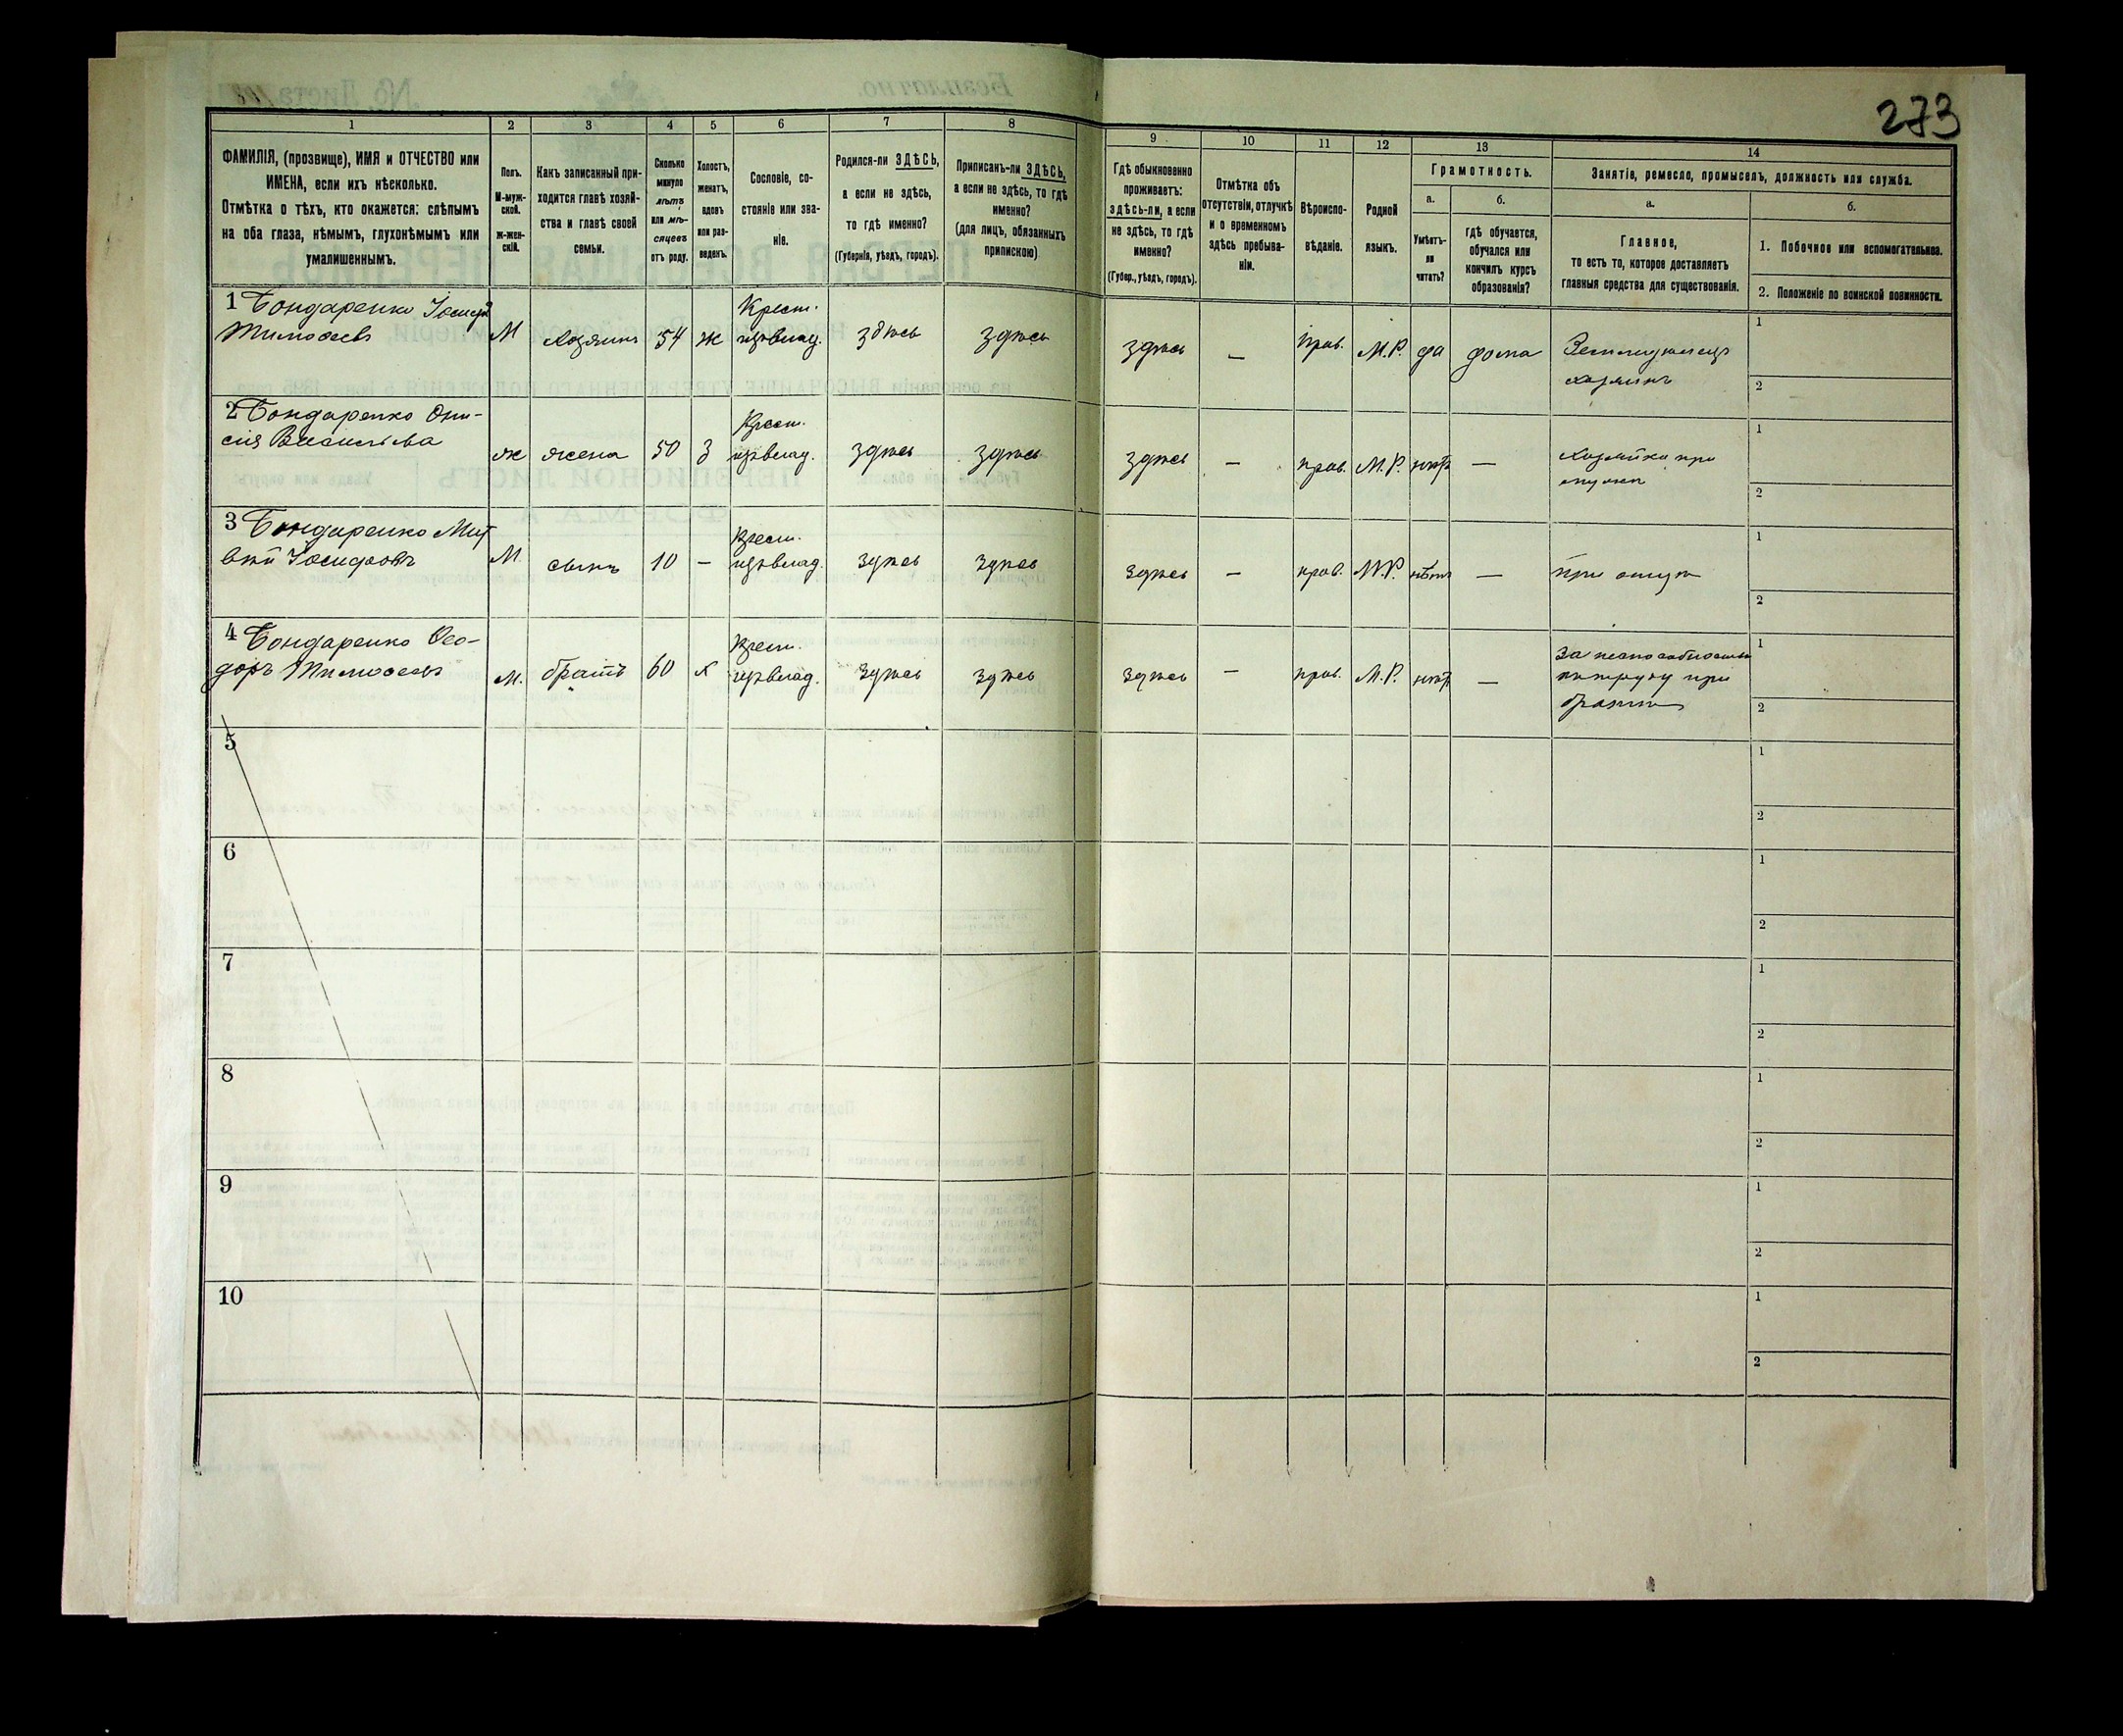 273
1 2 3 4 5 6 7 8 9 10 11 12 13 14
ФАМИЛІЯ, (прозвище), ИМЯ и ОТЧЕСТВО или
ИМЕНА, если ихъ нѣсколько.
Отмѣтка о тѣхъ, кто окажется: слѣпымъ
на оба глаза, нѣмымъ, глухонѣмымъ или
умалишеннымъ.
Полъ.
М-муж-
ской.
ж-жен-
скій.
Какъ записанный при-
ходится главѣ хозяй-
ства и главѣ своей
семьи.
Сколько
минуло
лѣтъ
или мѣ-
сяцевъ
отъ роду.
Холостъ,
женатъ,
вдовъ
или раз-
веденъ.
Сословіе, со-
стояніе или зва-
ніе.
Родился-ли ЗДѢСЬ,
а если не здѣсь,
то гдѣ именно?
(Губернія, уѣздъ, городъ).
Приписанъ-ли ЗДѢСЬ,
а если не здѣсь, то гдѣ
именно?
(для лицъ, обязанныхъ
припискою)
Гдѣ обыкновенно
проживаетъ:
здѣсь-ли, а если
не здѣсь, то гдѣ
именно?
(Губер., уѣздъ, городъ).
Отмѣтка объ
отсутствіи, отлучкѣ
и о временномъ
здѣсь пребыва-
ніи.
Вѣроиспо-
вѣданіе.
Родной
языкъ.
Грамотность.
а.
Умѣетъ-
ли
читать?
б.
гдѣ обучается,
обучался или
кончилъ курсъ
образованія?
Занятіе, ремесло, промыселъ, должность или служба.
а.
Главное,
то есть то, которое доставляетъ
главныя средства для существованія.
б.
1. Побочное или вспомогательное.
2. Положеніе по воинской повинности.
1 Бондаренко Іосифъ
Тимофеевъ
М
хозяинъ
54
ж
Крест.
изъ влад.
здѣсь
здѣсь
здѣсь
—
прав.
М.Р.
да
дома
Земледѣлецъ
хозяинъ
1
2
2 Бондаренко Они-
сія Васильева
ж
жена
50
З
Крест.
изъ влад.
здѣсь
здѣсь
здѣсь
—
прав.
М.Р.
нѣтъ
—
хозяйка при
мужѣ
1
2
3 Бондаренко Мат
вѣй Іосифовъ
М.
сынъ
10
—
Крест.
изъ влад.
здѣсь
здѣсь
здѣсь
—
прав.
М.Р.
нѣтъ
—
при отцѣ
1
2
4 Бондаренко Ѳео-
доръ Тимофеевъ
М.
братъ
60
х
Крест.
изъ влад.
здѣсь
здѣсь
здѣсь
—
прав.
М.Р.
нѣтъ
—
за неспособностью
къ труду при
братѣ
1
2
5
1
2
6
1
2
7
1
2
8
1
2
9
1
2
10
1
2